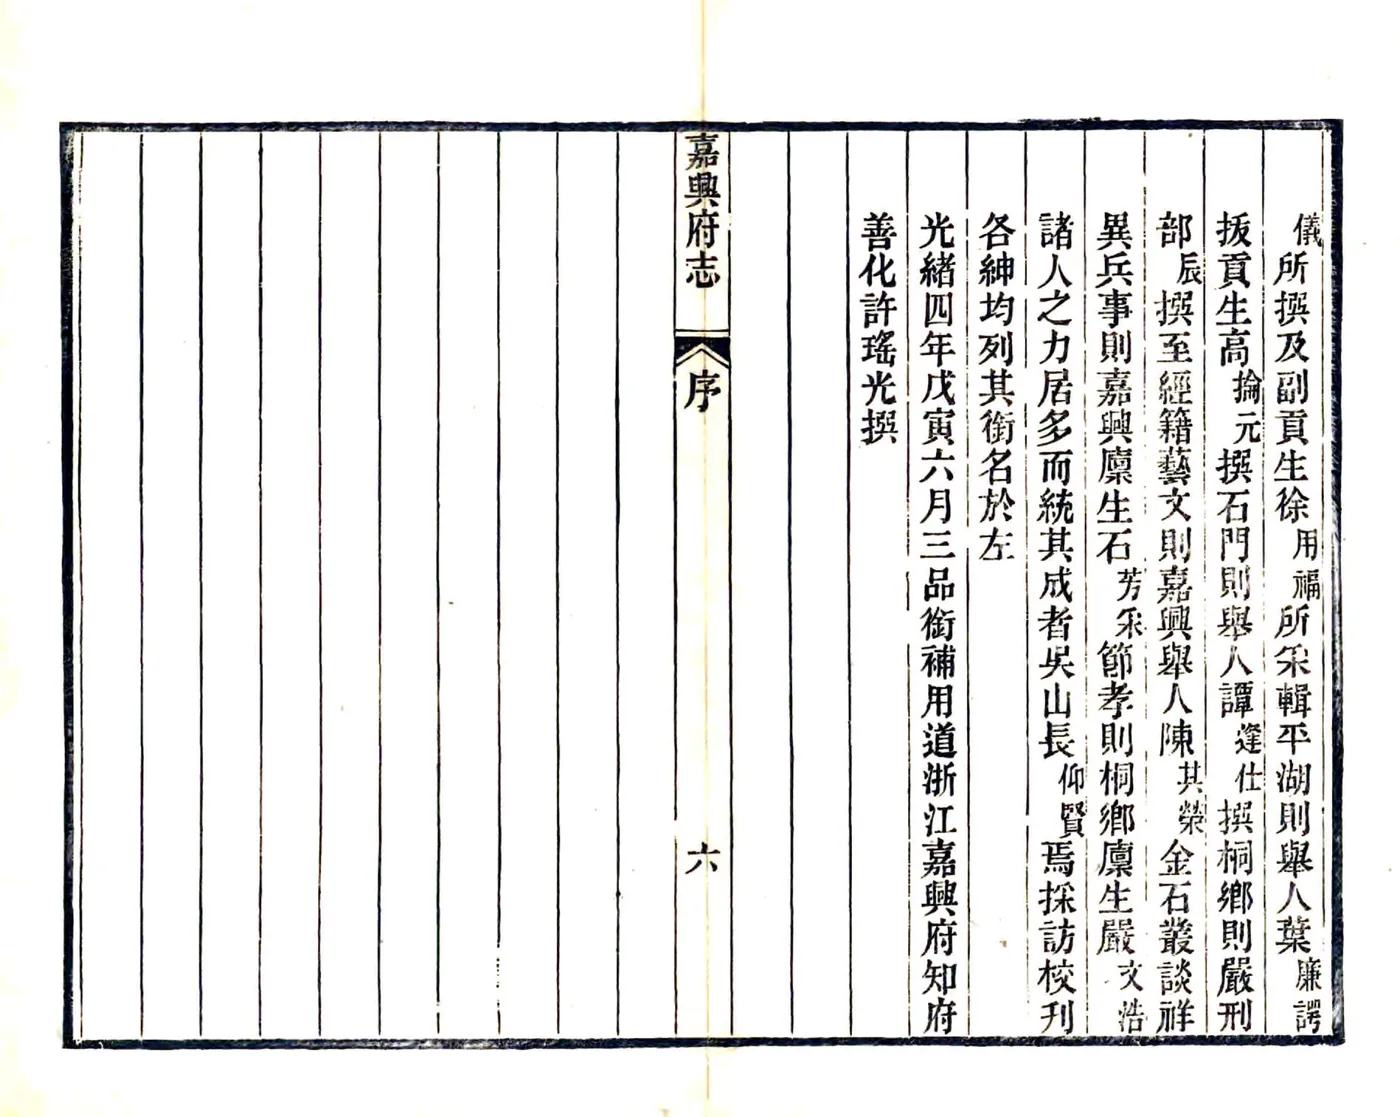 儀所撰及副貢生徐用福所采輯平湖則舉人葉廉諤
拔貢生高掄元撰石門則舉人譚逢仕撰桐鄉則嚴刑
部辰撰至經籍藝文則嘉興舉人陳其榮金石叢談祥
異兵事則嘉興廩生石芳采節孝則桐鄉廩生嚴文浩
諸人之力居多而統其成者吳山長仰賢焉採訪校刋
各紳均列其銜名於左
光緒四年戊寅六月三品銜補用道浙江嘉興府知府
善化許瑤光撰
嘉興府志
序
六